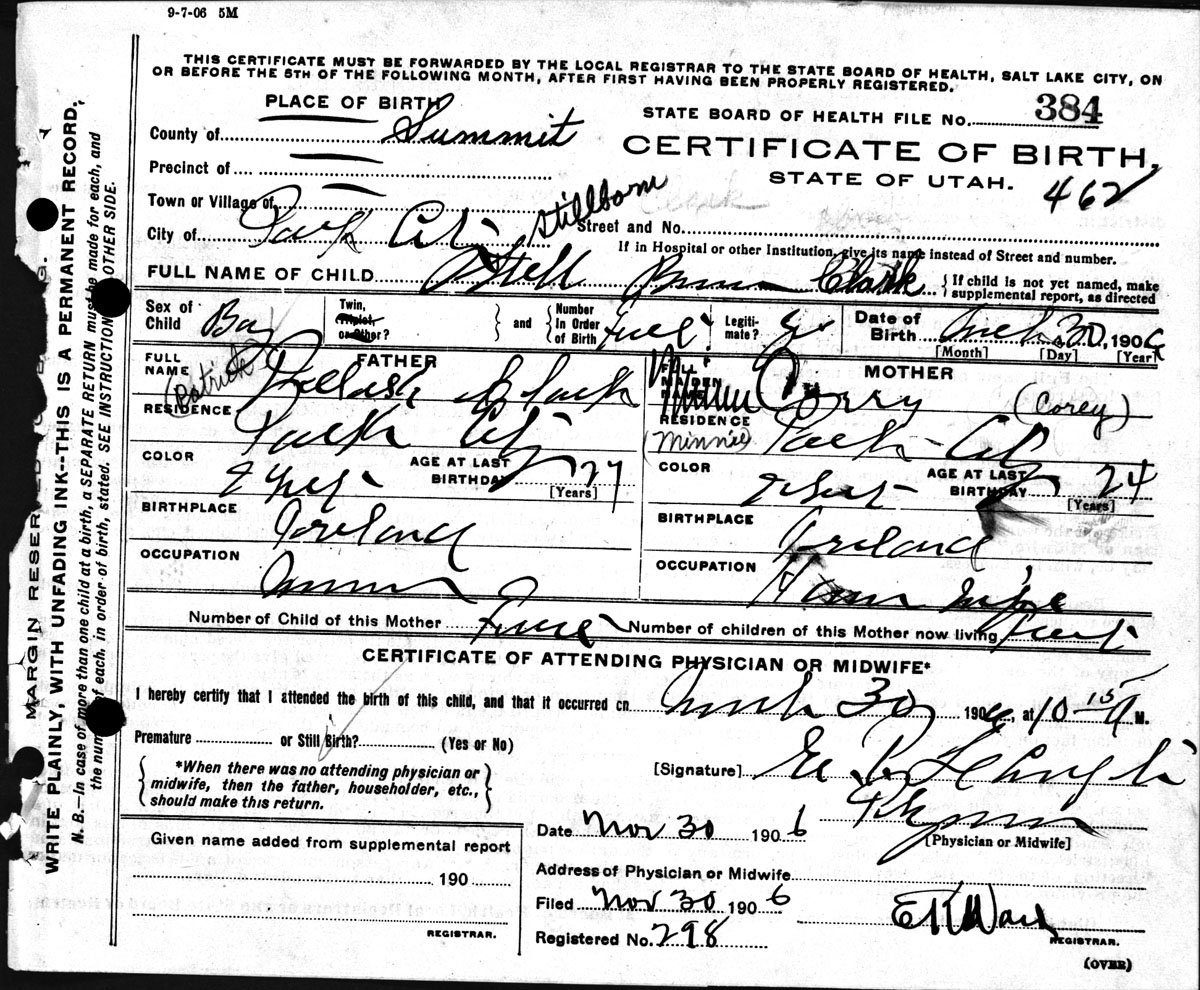 9-7-06 5M
THIS CERTIFICATE MUST BE FORWARDED BY THE LOCAL REGISTRAR TO THE STATE BOARD OF HEALTH, SALT LAKE CITY, ON
OR BEFORE THE 5TH OF THE FOLLOWING MONTH, AFTER FIRST HAVING BEEN PROPERLY REGISTERED.
PLACE OF BIRTH
STATE BOARD OF HEALTH FILE No. 384
County of Summit
CERTIFICATE OF BIRTH.
Precinct of
STATE OF UTAH. 462
Town or Village of
Stillborn
City of Park City
Street and No.
If in Hospital or other Institution, give its name instead of Street and number.
FULL NAME OF CHILD Clark
{ If child is not yet named, make
supplemental report, as directed
Sex of Child Boy
Twin, Triplet, or Other? } and { Number In Order of Birth
Legiti- mate?
Date of Birth 30, 1906
[Month] [Day] [Year]
FULL NAME FATHER
(Patrick)
FULL MAIDEN NAME MOTHER
Corry (Corey)
(Minnie)
RESIDENCE Park City
RESIDENCE Park City
COLOR AGE AT LAST BIRTHDAY 27 [Years]
COLOR AGE AT LAST BIRTHDAY 24 [Years]
BIRTHPLACE Ireland
BIRTHPLACE Ireland
OCCUPATION
OCCUPATION House wife
Number of Child of this Mother
Number of children of this Mother now living
CERTIFICATE OF ATTENDING PHYSICIAN OR MIDWIFE*
I hereby certify that I attended the birth of this child, and that it occurred on 30 1906, at 10 15 A M.
Premature or Still Birth? (Yes or No)
{ *When there was no attending physician or
midwife, then the father, householder, etc.,
should make this return. }
[Signature]
Date Nov 30 1906
[Physician or Midwife]
Given name added from supplemental report
190
REGISTRAR.
Address of Physician or Midwife
Filed Nov 30 1906
Registered No. 298
E K Ward
REGISTRAR.
(OVER)
MARGIN RESERVED
WRITE PLAINLY, WITH UNFADING INK--THIS IS A PERMANENT RECORD.
N. B.—In case of more than one child at a birth, a SEPARATE RETURN must be made for each, and
the number of each, in order of birth, stated. SEE INSTRUCTION OTHER SIDE.